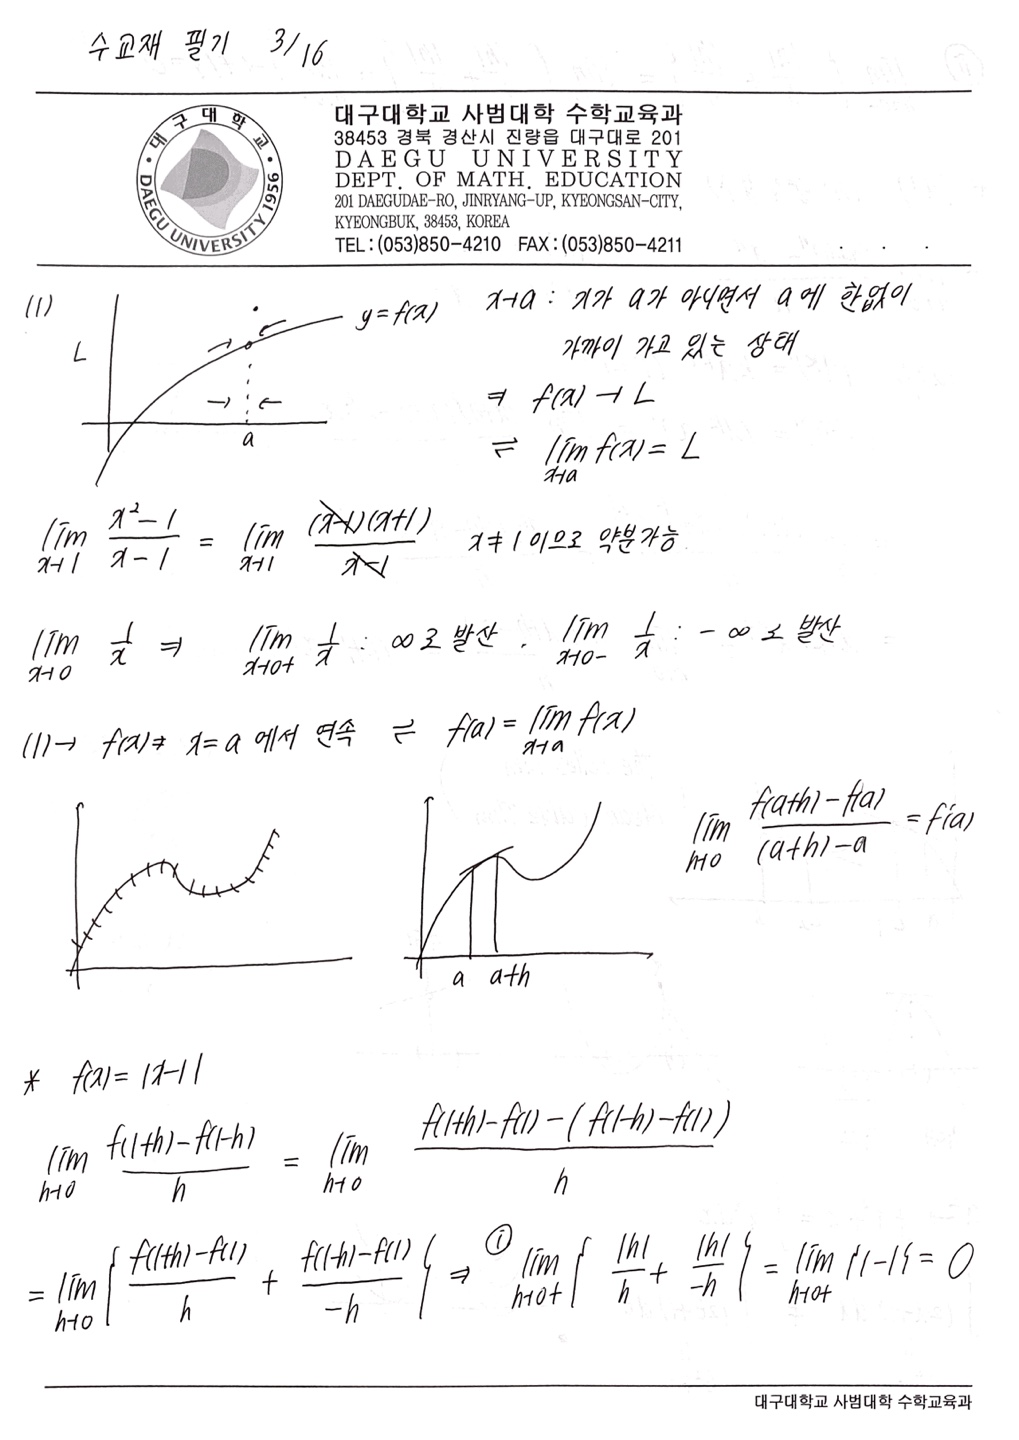 수교재 필기 3/16
대구대학교
DAEGU UNIVERSITY 1956
대구대학교 사범대학 수학교육과
38453 경북 경산시 진량읍 대구대로 201
DAEGU UNIVERSITY
DEPT. OF MATH. EDUCATION
201 DAEGUDAE-RO, JINRYANG-UP, KYEONGSAN-CITY,
KYEONGBUK, 38453, KOREA
TEL : (053)850-4210 FAX : (053)850-4211
(1) L a y=f(x)
x→a : x가 a가 아니면서 a에 한없이
가까이 가고 있는 상태
⇒ f(x)→L
⇌ lim_{x→a} f(x) = L
lim_{x→1} (x²-1)/(x-1) = lim_{x→1} (x-1)(x+1)/(x-1) x≠1이으로 약분가능
lim_{x→0} 1/x ⇒ lim_{x→0+} 1/x : ∞로 발산. lim_{x→0-} 1/x : -∞로 발산
(1)→ f(x)⇒ x=a에서 연속 ⇌ f(a) = lim_{x→a} f(x)
a a+h
lim_{h→0} (f(a+h)-f(a))/((a+h)-a) = f'(a)
* f(x)= |x-1|
lim_{h→0} (f(1+h)-f(1-h))/h = lim_{h→0} (f(1+h)-f(1)-(f(1-h)-f(1)))/h
= lim_{h→0} { (f(1+h)-f(1))/h + (f(1-h)-f(1))/(-h) } ⇒ ① lim_{h→0+} { |h|/h + |h|/(-h) } = lim_{h→0+} {1-1} = 0
대구대학교 사범대학 수학교육과